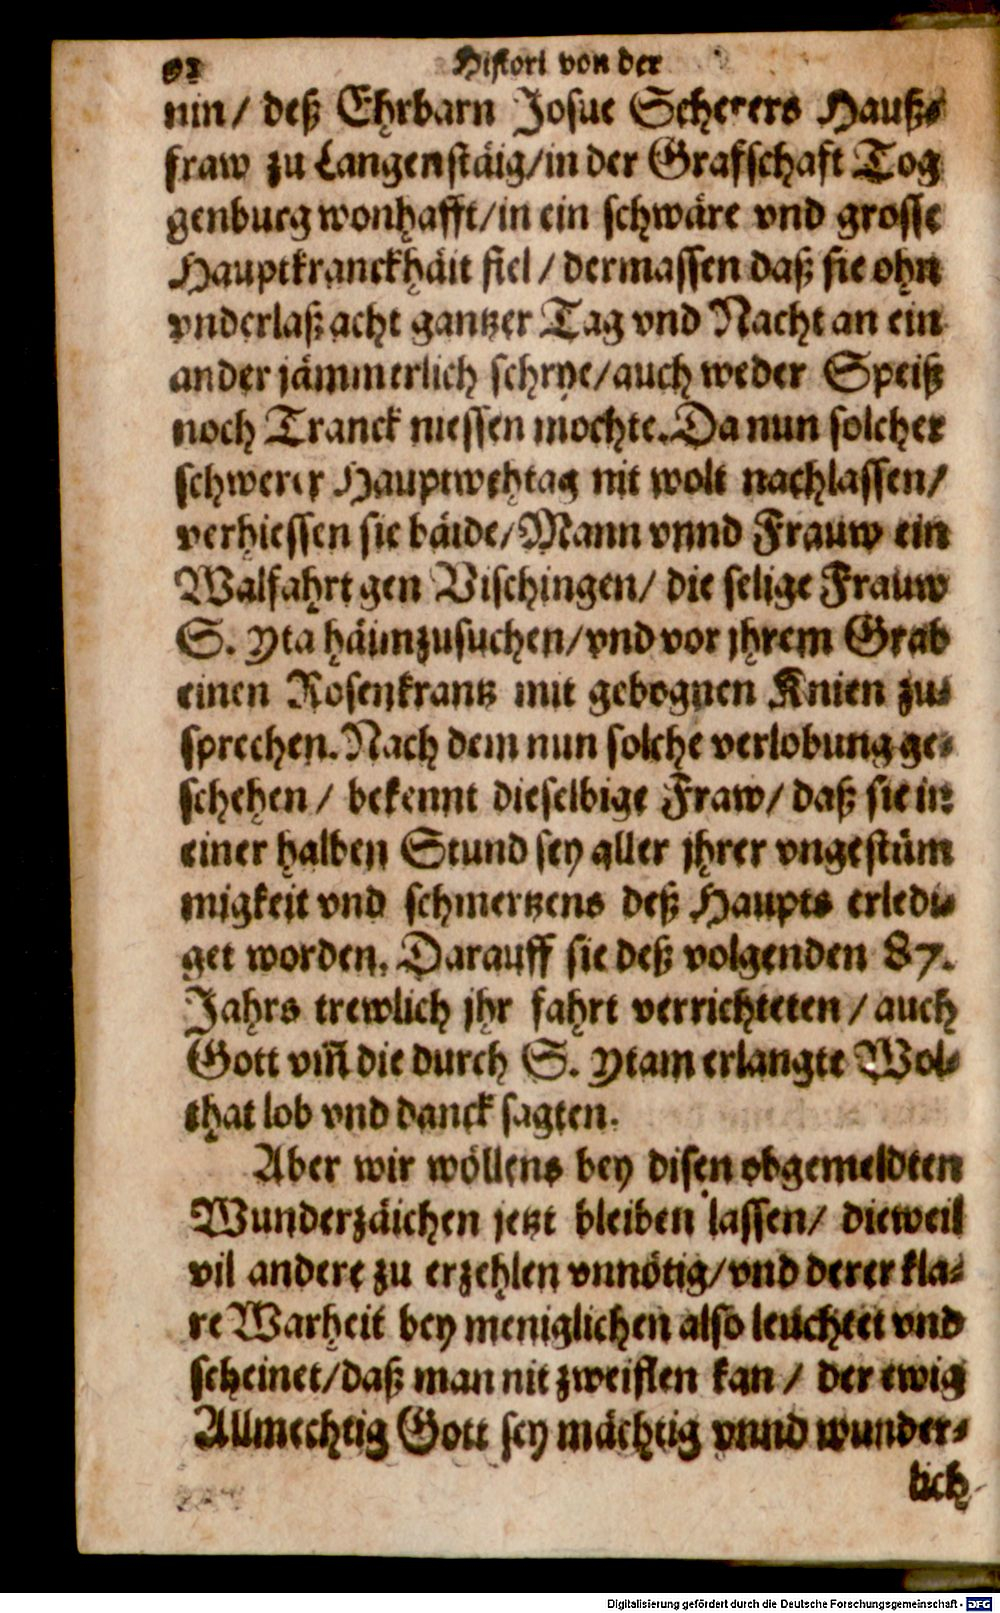 92 Histori von der
nin/ deß Ehrbarn Josue Scherers Hauß-
fraw zu Langenstäig/in der Grafschaft Tog
genburg wonhafft/in ein schwäre vnd grosse
Hauptkranckhäit fiel / dermassen daß sie ohn
vnderlaß acht gantzer Tag vnd Nacht an ein
ander jämmerlich schrye/auch weder Speiß
noch Tranck niessen mochte. Da nun solcher
schwerer Hauptwehtag nit wolt nachlassen/
verhiessen sie bäide/Mann vnnd Frauw ein
Walfahrt gen Vischingen/ die selige Frauw
S. Yta häimzusuchen/vnd vor jhrem Grab
einen Rosenkrantz mit gebognen Knien zu-
sprechen. Nach dem nun solche verlobung ge-
schehen / bekennt dieselbige Fraw/ daß sie in
einer halben Stund sey aller jhrer vngestüm
migkeit vnd schmertzens deß Haupts erledi-
get worden. Darauff sie deß volgenden 87.
Jahrs trewlich jhr fahrt verrichteten / auch
Gott vm̃ die durch S. Ytam erlangte Wol-
that lob vnd danck sagten.
Aber wir wöllens bey disen obgemeldten
Wunderzäichen jetzt bleiben lassen/ dieweil
vil andere zu erzehlen vnnötig/vnd derer kla-
re Warheit bey meniglichen also leuchtet vnd
scheinet/daß man nit zweiflen kan / der ewig
Allmechtig Gott sey mächtig vnnd wunder-
lich
Digitalisierung gefördert durch die Deutsche Forschungsgemeinschaft - DFG